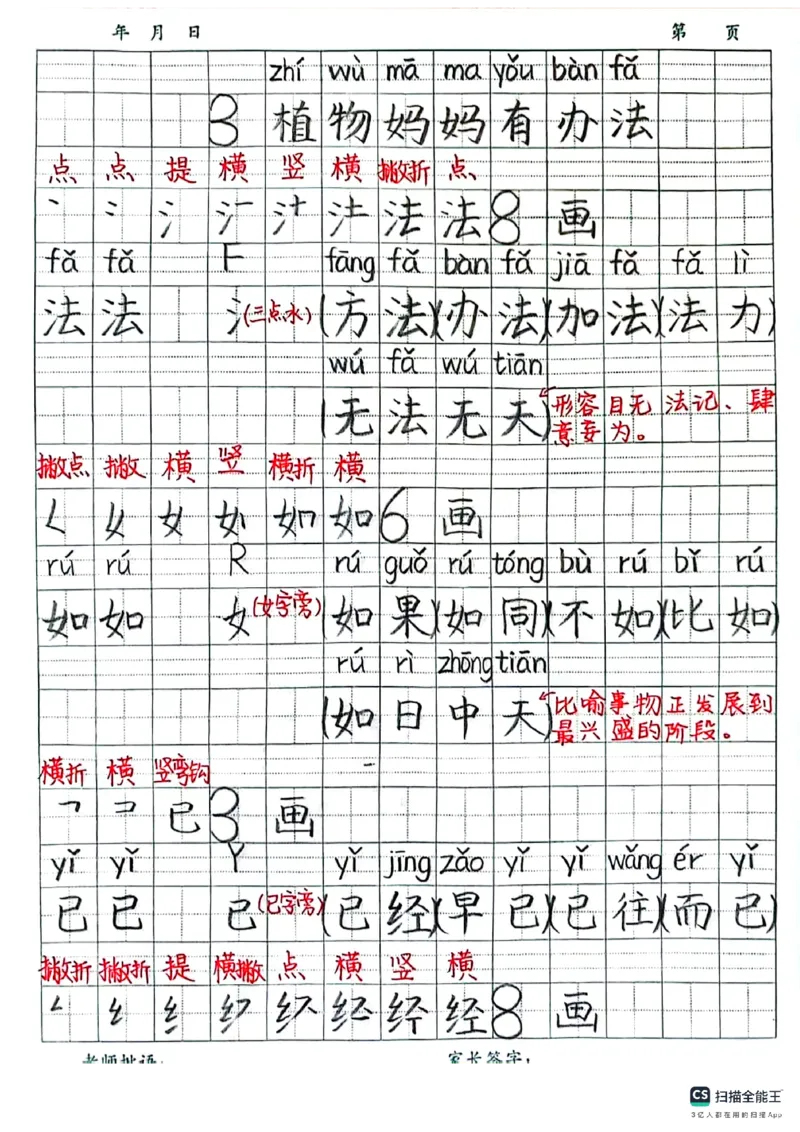 年 月 日 第 页
zhí wù mā ma yǒu bàn fǎ
3 植物妈妈有办法
点 点 提 横 竖 横 撇折 点
丶 冫 氵 法 法 8 画
fǎ fǎ F fāng fǎ bàn fǎ jiā fǎ fǎ lì
法 法 氵(三点水) (方法)(办法)(加法)(法力)
wú fǎ wú tiān
(无法无天) 形容目无法记、肆
意妄为。
撇点 撇 横 竖 横折 横
女 如 6 画
rú rú R rú guǒ rú tóng bù rú bǐ rú
如 如 女(女字旁) (如果)(如同)(不如)(比如)
rú rì zhōng tiān
(如日中天) 比喻事物正发展到
最兴盛的阶段。
横折 横 竖弯钩
㇕ コ 已 3 画
yǐ yǐ Y yǐ jīng zǎo yǐ yǐ wǎng ér yǐ
已 已 已(已字旁) (已经)(早已)(已往)(而已)
撇折 撇折 提 横撇 点 横 竖 横
纟 经 8 画
老师批语: 家长签字:
CS 扫描全能王
3亿人都在用的扫描App